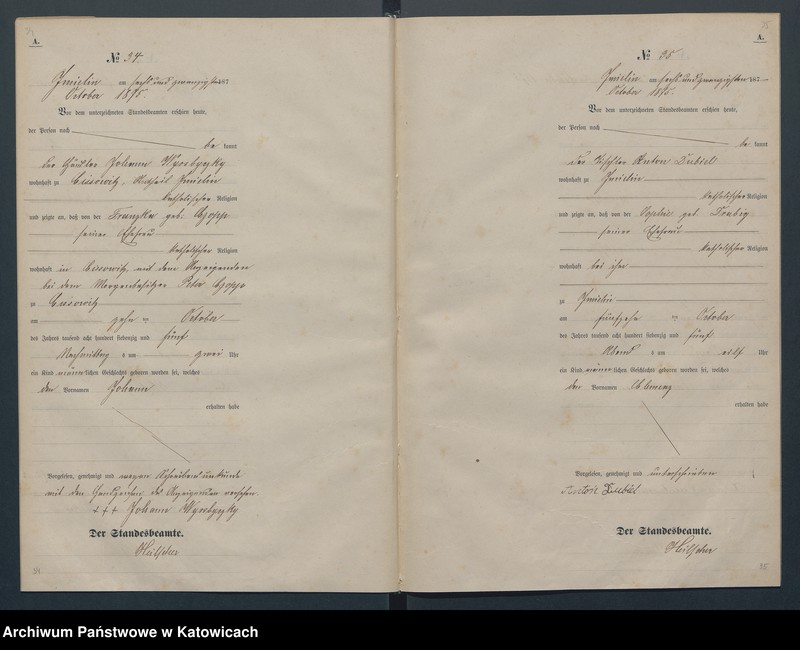 A.
№ 34.
Imielin am sechs und zwanzigsten 187
October 1875.
Vor dem unterzeichneten Standesbeamten erschien heute,
der Person nach
be kannt
der Häusler Johann
wohnhaft zu Cissowitz, Antheil Imielin
katholischer Religion
und zeigte an, daß von der Franzka geb.
seiner Ehefrau
katholischer Religion
wohnhaft in Cissowitz mit dem Anzeigenden
bei dem Peter
zu Cissowitz
am zehn ten October
des Jahres tausend acht hundert siebenzig und fünf
Nachmittag s um zwei Uhr
ein Kind männlichen Geschlechts geboren worden sei, welches
den Vornamen Johann
erhalten habe
Vorgelesen, genehmigt und wegen Schreibensunkunde
mit den Handzeichen des Anzeigenden versehen
+++ Johann
Der Standesbeamte.
34
A.
№ 35
Imielin am sechs und zwanzigsten 187
October 1875.
Vor dem unterzeichneten Standesbeamten erschien heute,
der Person nach
be kannt
der Tischler Anton Dubiel
wohnhaft zu Imielin
katholischer Religion
und zeigte an, daß von der Sophie geb.
seiner Ehefrau
katholischer Religion
wohnhaft bei ihm
zu Imielin
am fünfzehn ten October
des Jahres tausend acht hundert siebenzig und fünf
Abend s um elf Uhr
ein Kind männlichen Geschlechts geboren worden sei, welches
den Vornamen Clemenz
erhalten habe
Vorgelesen, genehmigt und unterschrieben
Anton Dubiel
Der Standesbeamte.
35
Archiwum Państwowe w Katowicach